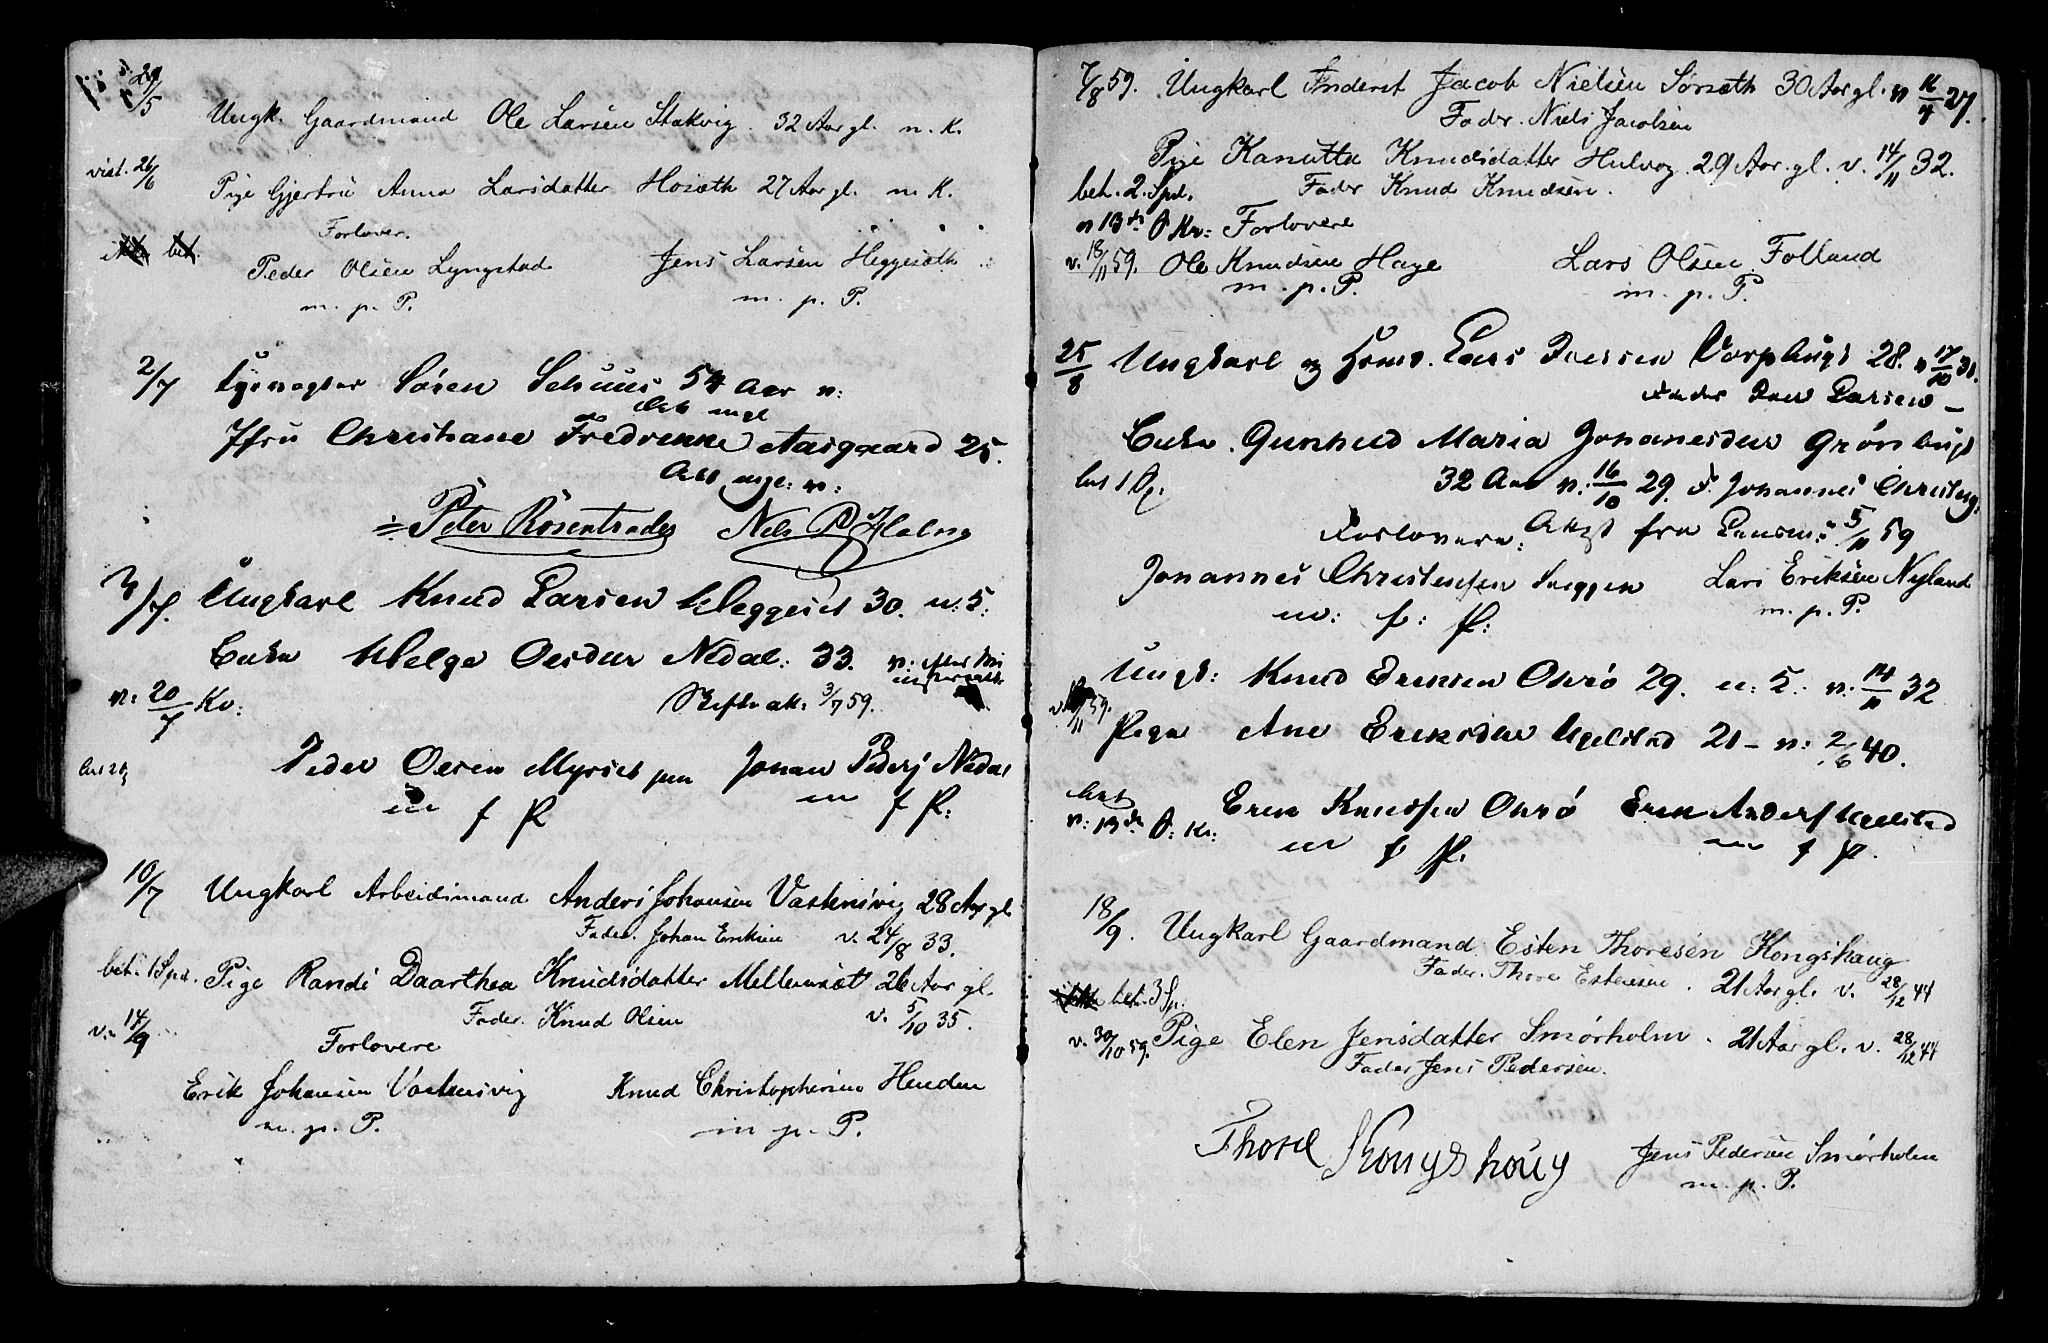 29/5
Ungk. Gaardmand Ole Larsen Stakvig. 32 Aar gl. n. K.
vist. 26/6
Pige Gjertru Anna Larsdatter Hosæth 27 Aar gl. n. K.
Forlover.
ikke bet.
Peder Olsen Lyngstad Jens Larsen Heggesæth
m. p. P. m. p. P.
2/7 Søren Schuus 54 Aar v:
Att
Jfru Christiane Fredrikke Aasgaard 25.
Att v:
Peter Rosentræder Nels P Holm
3/7. Ungkarl Knud Larsen Heggeset 30. u: 5:
Helge Olsdtr Nedal: 33.
v: 20/7 Kv: Skifteatt: 3/7 59.
Peder Olsen Myrset Johan Nedal
m p P m p P:
10/7 Ungkarl Arbeidsmand Anders Johansen Vastensvig 28 Aar gl.
Fader. Johan Eriksen v. 24/8 33.
bet. 1 Spd. Pige Randi Daarthea Knudsdatter Mellemsæt 26 Aar gl.
Fader. Knud Olsen v. 5/10 35.
v. 14/9
Forlovere
Erik Johansen Vastensvig Knud Christophersen Henden
m. p. P. m p. P.
7/8 59. Ungkarl Inderst Jacob Nielsen Sørsæth 30 Aar gl. v 27.
Fader. Niels Jacobsen
Pige Kanutta Knudsdatter Hulvog 29 Aar. gl. v. 14/11 32.
bet. 2. Spd. Fader Knud Knudsen.
v 13de Kv: Forlovere
v. 18/11 59. Ole Knudsen Hage Lars Olsen Folland
m. p. P. m. p. P.
25/8 Ungkarl og Lars Iversen 28. v 17/10 31.
Fader Iver Larsen
Enke. Gunhild Maria Johanesdtr
32 Aar v. 16/10 29. F. Johannes
Forlovere: Attest fra 5/11 59
Johannes Christensen Lars Eriksen Nyland
m: p: P: m. p. P.
Ungk: Knud Eriksen Ohrø 29. u: 5: v. 14/11 32
Pige Ane Eriksdtr Ugelstad 21 v: 2/6 40.
bet
v: 13de Kv:
Erik Knudsen Ohrø Erik Ugelstad
m p P. m p P.
18/9. Ungkarl Gaardmand Esten Thoresen Kongshaug
Fader. Thore Estensen. 21 Aar gl. v. 28/12 44
ikke bet. 3 Sp.
v. 30/10 59. Pige Elen Jensdatter Smørholm. 21 Aar gl. v. 28/12 44
Fader Jens Pedersen.
Thore Kongshoug Jens Pedersen Smørholm
m. p. P.